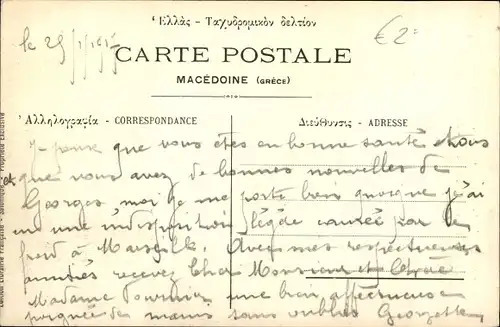 Ἑλλὰς - Ταχυδρομικὸν δελτίον
le 29/1/1917
€ 2.
CARTE POSTALE
MACÉDOINE (GRÈCE)
Ἀλληλογραφία - CORRESPONDANCE
Διεύθυνσις - ADRESSE
Je pense que vous êtes en bonne santé tous
et que vous avez de bonnes nouvelles de
Georges moi je me porte bien quoique j'ai
eu une indisposition légère causée par le
froid à Marseille. Avec mes respectueuses
amitiés recevez Cher Monsieur et Chère
Madame Fournier une bien affectueuse
poignée de mains sans oublier Georgette